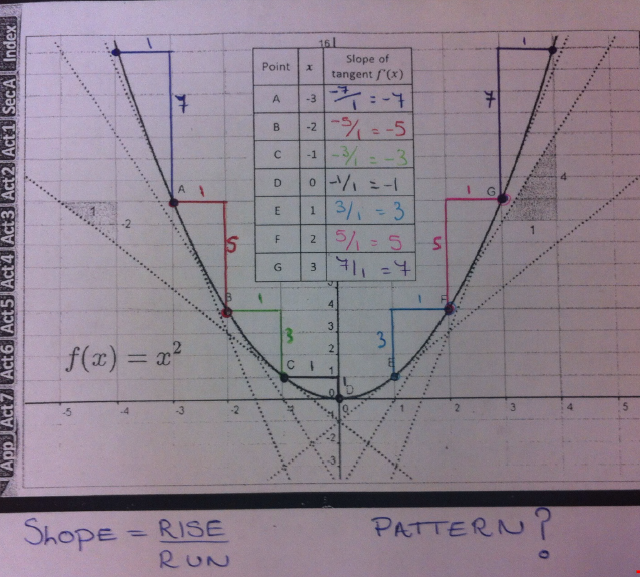 Index
Sec A
Act 1
Act 2
Act3
Act4
Act5
Act6
Act7
App
16
Point x Slope of tangent f'(x)
A -3 -7/1 = -7
B -2 -5/1 = -5
C -1 -3/1 = -3
D 0 -1/1 = -1
E 1 3/1 = 3
F 2 5/1 = 5
G 3 7/1 = 7
1
7
1
7
A
1
1
G
4
1
-2
5
5
1
B
1
1
F
4
3
3
3
2
C
1
1
E
1
1
D
0
-5 -4 -3 -2 0 1 2 3 4 5
-1
-2
-3
f(x) = x²
SLOPE = RISE
RUN
PATTERN?